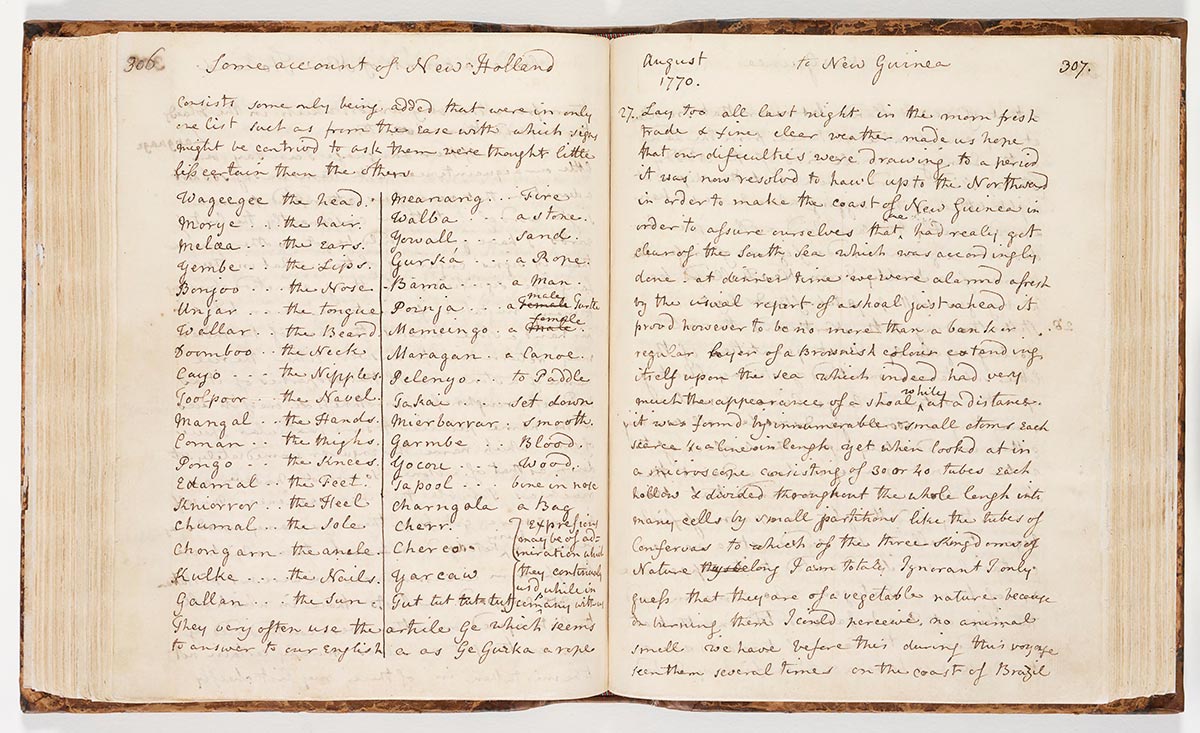 306. Some account of New Holland
consists some only being added that were in only
one list such as from the ease with which signs
might be contrivd to ask them were thought little
less certain than the others
Wageegee the head.
Morye .. the hair.
Melea .. the Ears.
Yembe .. the Lips.
Bonjoo .. the Nose
Unjar .. the tongue
Wallar .. the Beard
Doomboo .. the Neck
Cayo ... the Nipples.
Toolpoor .. the Navel.
Mangal .. the Hands.
Coman .. the thighs.
Pongo .. the Knees.
Edamal .. the Feet.
Kniorror .. the Heel
Chumal .. the Sole
Chongarn .. the ancle.
Kulke ... the Nails.
Gallan ... the Sun.
Meanang ... Fire
Walba .... a stone.
Yowall .... sand.
Gurka .... a Rope.
Bama .... a Man.
Poinja .. a female male Turtle
Mameingo . a male female .
Maragan . a Canoe.
Pelenyo ... to Paddle
Takai .... set down
Mierbarrar . smooth.
Garmbe .. Blood.
Yocou .... Wood.
Tapool ... bone in nose
Charngala a Bag
Cherr. Expressions
maybe of ad-
Cherco. miration which
Yarcaw they continualy
usd while in
Tut tut tut tut company with us
They very often use the article Ge which seems
to answer to our English a as Ge Gurka a rope
August to New Guinea 307.
1770.
27. Lay too all last night in the morn fresh
trade & fine clear weather made us hope
that our dificulties were drawing to a period
it was now resolvd to hawl up to the Northward
in order to make the coast of New Guinea in
order to assure ourselves that we had realy got
clear of the South Sea which was accordingly
done. at dinner time we were alarmd afresh
by the usual report of a shoal just ahead it
provd however to be no more than a bank or
regular layer of a Brownish colour extending
itself upon the sea which indeed had very
much the appearance of a shoal while at a distance.
it was formd by innumerable small atoms each
scarce ½ a line in lengh yet when lookd at in
a microscope consisting of 30 or 40 tubes each
hollow & divided throughout the whole lengh into
many cells by small partitions like the tubes of
Confervas to which of the three Kingdoms of
Nature they belong I am totaly Ignorant I only
guess that they are of a vegetable nature because
on burning them I could perceive no animal
smell we have before this during this voyage
seen them several times on the coast of Brazil